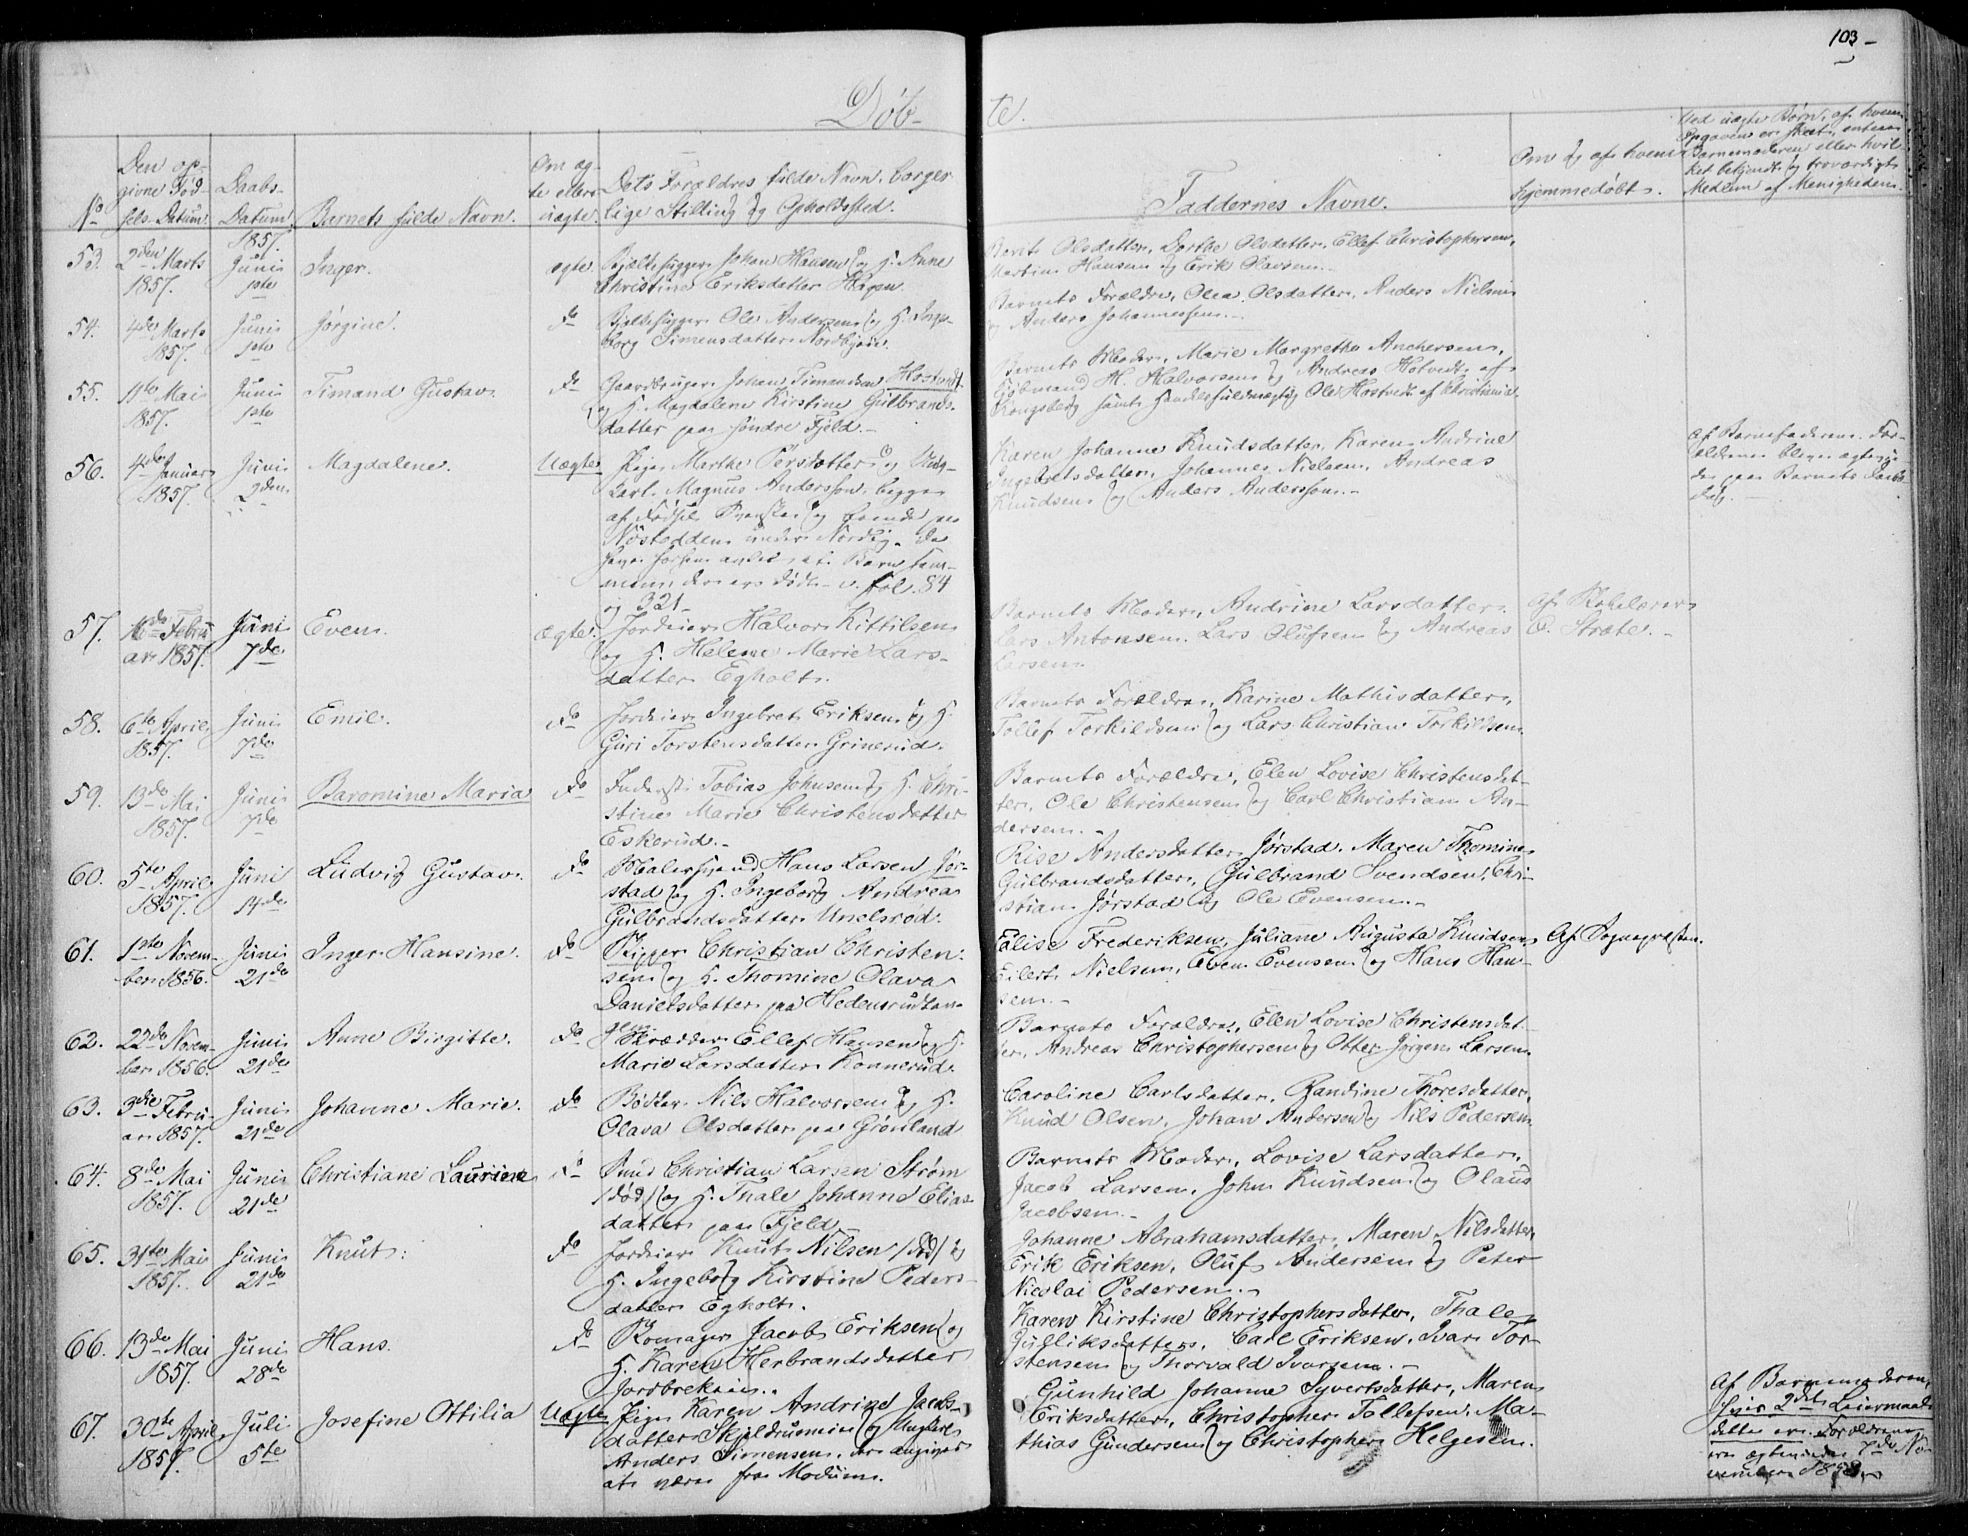 103
Døb-
te.
No
Den op-
givne Fød-
sels-Datum.
Daabs-
Datum.
Barnets fulde Navn.
Om æg-
te eller
uægte.
Dets Forældres fulde Navn, borger-
lige Stilling og Opholdssted.
Faddernes Navne.
Om og af hvem
hjemmedøbt.
Ved uægte Børn, af hvem
Opgaven er skeet, enten
Barnemoderen eller hvil-
ket bekjendt og troværdigt
Medlem af Menigheden.
1857.
53. 2den Marts
1857.
Juni
1ste
Inger.
ægte
Johan Hansen og H. Anne
Christine Eriksdatter Hagen.
Berit Olsdatter, Dorthe Olsdatter, Ellef Christophersen,
Martin Hansen og Erik Olavsen.
54. 4de Marts
1857.
Juni
1ste
Jørgine.
do
Ole Andersen og H. Inge-
borg Simensdatter
Barnets Forældre, Olea Olsdatter, Anders Nielsen
og Anders Johannessen.
55. 11te Mai
1857.
Juni
1ste
Timand Gustav.
do
Gaardbruger Johan Timandsen Hostvedt
og H. Magdalene Kirstine Gulbrands-
datter paa søndre Fjeld.
Barnets Moder, Marie Margrethe Anchersen,
Kjøbmand H. Halvorsen og Andreas Hotvedt af
Kongsberg samt Handelsfuldmægtig Ole Hostvedt af Christiania.
56. 4de Januar
1857.
Juni
2den
Magdalene.
Uægte
Pige Marthe Persdatter og Ung-
karl Magnus Andersson, begge
af Fødsel Svenske og boende paa
under Nordby. De
have forhen avlet et Barn sam-
men, der er død. v. fol. 84
og 321
Karen Johanne Knudsdatter, Karen Andrine
Ingebretsdatter, Johannes Nielsen, Andreas
Knudsen og Anders Andersson.
Af Barnefaderen. For-
ældrene bleve ægtevi-
de paa Barnets Daabs-
dag.
57. 16de Febru-
ar 1857.
Juni
7de
Even.
ægte.
Jordeier Halvor Kittilsen
og H. Helene Marie Lars-
datter Egholt.
Barnets Moder, Andrine Larsdatter,
Lars Antonsen, Lars Olufsen og Andreas
Larsen.
Af Skolelærer
O. Stræte.
58. 6te April
1857.
Juni
7de
Emil.
do
Jordeier Ingebret Eriksen og H.
Guri Torstensdatter Grinerud.
Barnets Forældre, Karine Mathisdatter,
Tollef Torkildsen og Lars Christian Torkildsen.
59. 13de Mai
1857.
Juni
7de
Baromine Maria
do
Inderst Tobias Johnsen og H. Chri-
stine Marie Christensdatter
Eskerud.
Barnets Forældre, Elen Lovise Christensdat-
ter, Ole Christensen og Carl Christian An-
dersen.
60. 5te April
1857.
Juni
14de
Ludvig Gustav.
do
Malersvend Hans Larsen Jør-
stad og H. Ingeborg Andrea
Gulbrandsdatter Unelsrød.
Rise Andersdatter Jørstad, Maren Thomine
Gulbrandsdatter, Gulbrand Svendsen, Chri-
stian Jørstad og Ole Evensen.
61. 1ste Novem-
ber 1856.
Juni
21de
Inger Hansine.
do
Rygger Christian Christen-
sen og H. Thomine Olava
Danielsdatter paa Hedensrudtan-
gen.
Elise Frederiksen, Juliane Augusta Knudsen,
Eilert Nielsen, Even Evensen og Hans Han-
sen.
Af Sognepræsten.
62. 22de Novem-
ber 1856.
Juni
21de
Anne Birgitte.
do
Skrædder Ellef Hansen og H.
Marie Larsdatter Konnerud.
Barnets Forældre, Elen Lovise Christensdat-
ter, Andreas Christophersen og Otter Jørgen Larsen.
63. 3die Febru-
ar 1857.
Juni
21de
Johanne Marie.
do
Bødker Nils Halvorsen og H.
Olava Olsdatter paa Grønland
Caroline Carlsdatter, Randine Thoresdatter,
Knud Olsen, Johan Andersen og Nils Pedersen.
64. 8de Mai
1857.
Juni
21de
Christiane Laurine
do
Smed Christian Larsen Strøm
/død/ og H. Thale Johanne Elias-
datter paa Fjeld
Barnets Moder, Lovise Larsdatter,
Jacob Larsen, John Knudsen og Olaus
Jacobsen.
65. 31te Mai
1857.
Juni
21de
Knut.
do
Jordeier Knut Nilsen /død/ og
H. Ingeborg Kirstine Peders-
datter Egholt.
Johanne Abrahamsdatter, Maren Nilsdatter,
Erik Eriksen, Oluf Andersen og Peter
Nicolai Pedersen.
66. 13de Mai
1857.
Juni
28de
Hans.
do
Skomager Jacob Eriksen og
H. Karen Herbrandsdatter
Jordbrekken.
Karen Kirstine Christophersdatter, Thale
Gulliksdatter, Carl Eriksen, Ivar Tor-
stensen og Thorvald Ivarsen.
67. 30te April
1857.
Juli
5te
Josefine Ottilia
Uægte
Pige Karen Andrine Jacobs-
datter Skjoldrumeie og Ungkarl
Anders Simensen, der angives
at være fra Modum.
Gunhild Johanne Syvertsdatter, Maren
Eriksdatter, Christopher Tollefsen, Ma-
thias Gundersen og Christopher Helgesen.
Af Barnemoderen,
hvis 2det Leiermaal
dette er. Forældrene
ere ægteviede 7de No-
vember 1858.